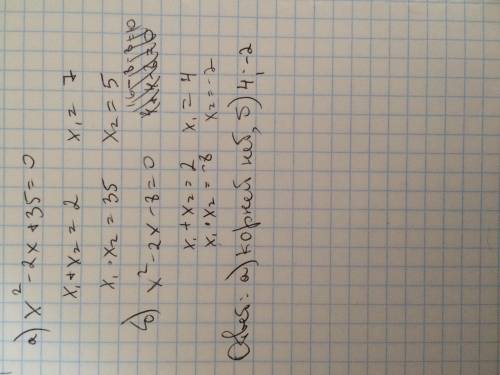 а) x² - 2x + 35 = 0
x₁ + x₂ = 2 x₁ = 7
x₁ · x₂ = 35 x₂ = 5
б) x² - 2x - 8 = 0
x₁ + x₂ = 2 x₁ = 4
x₁ · x₂ = -8 x₂ = -2
Ответ: а) корней нет, б) 4; -2